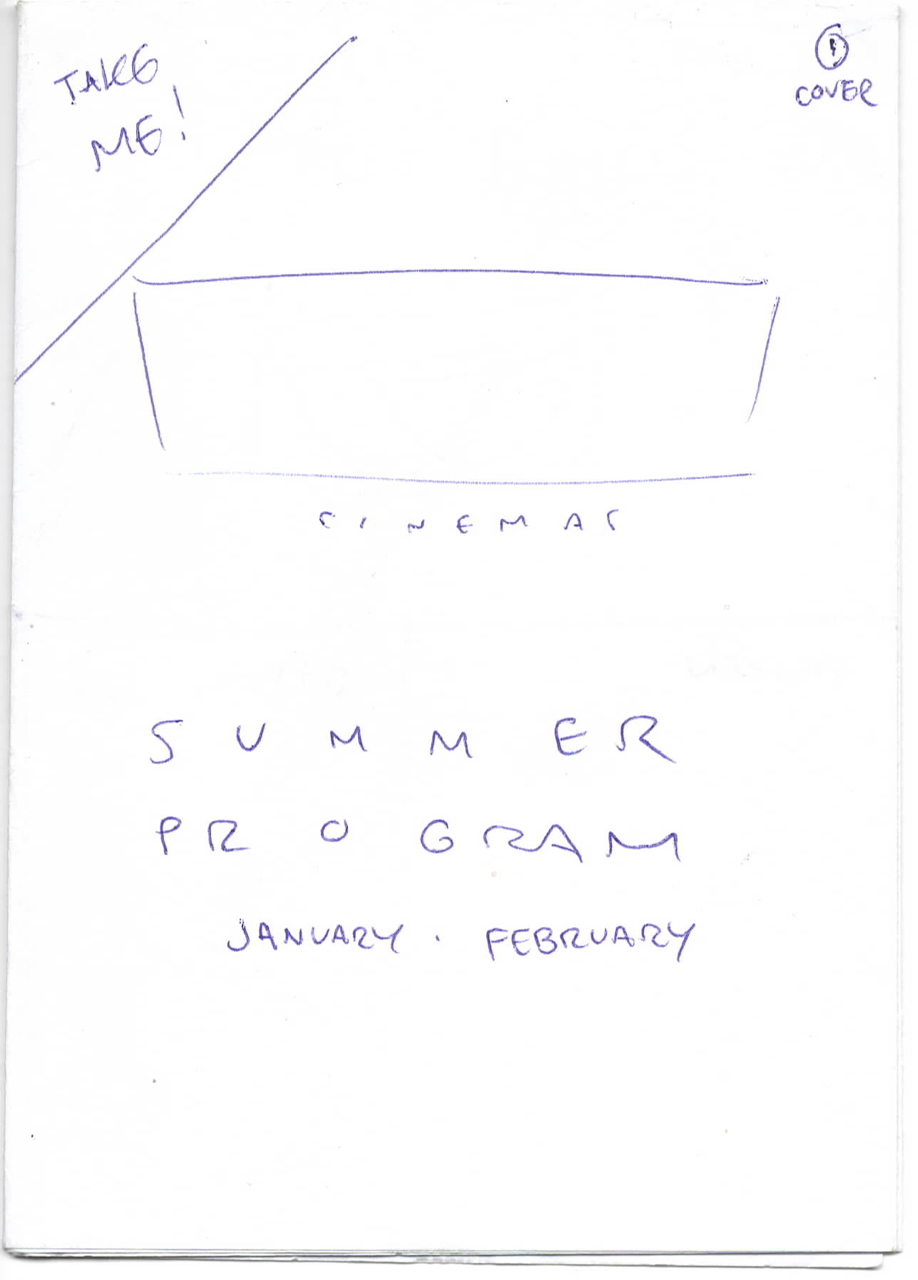 TAKE
ME!
1
COVER
CINEMAS
SUMMER
PROGRAM
JANUARY . FEBRUARY